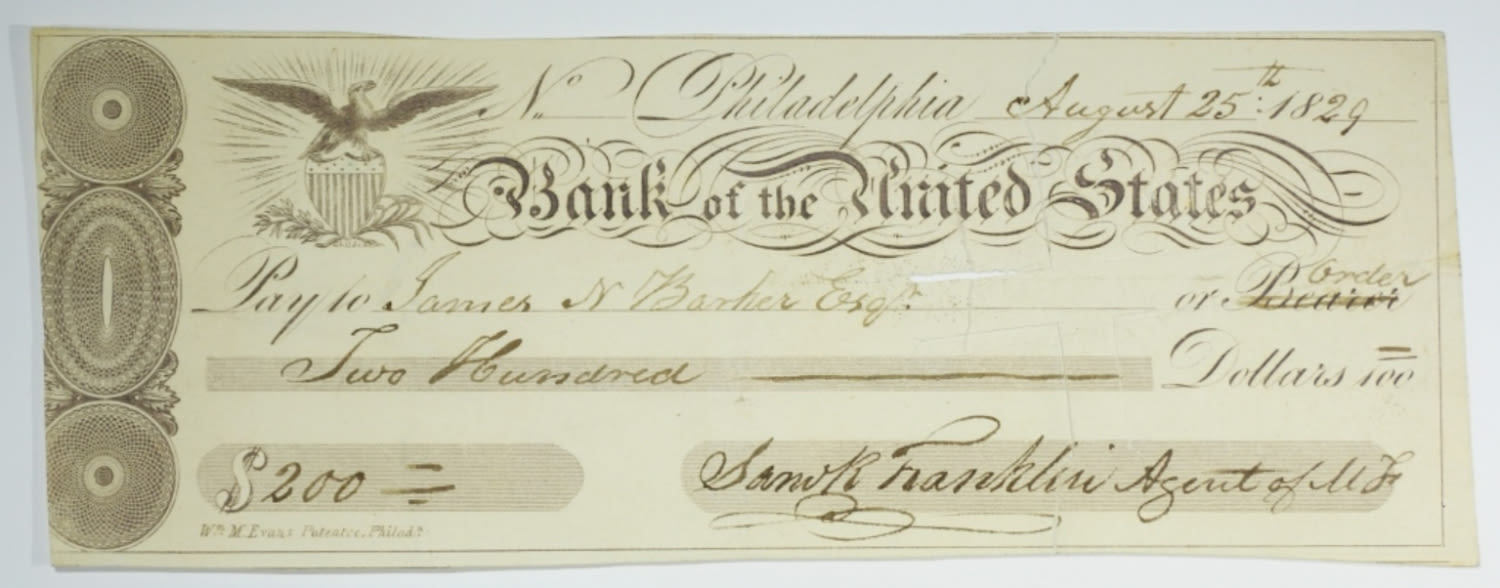 No. Philadelphia August 25th: 1829
Bank of the United States
Pay to James N Barker Esqr. or Bearer Order
Two Hundred Dollars 100
$200 =
Franklin Agent of
Wm. M. Evans Patentee, Philada.